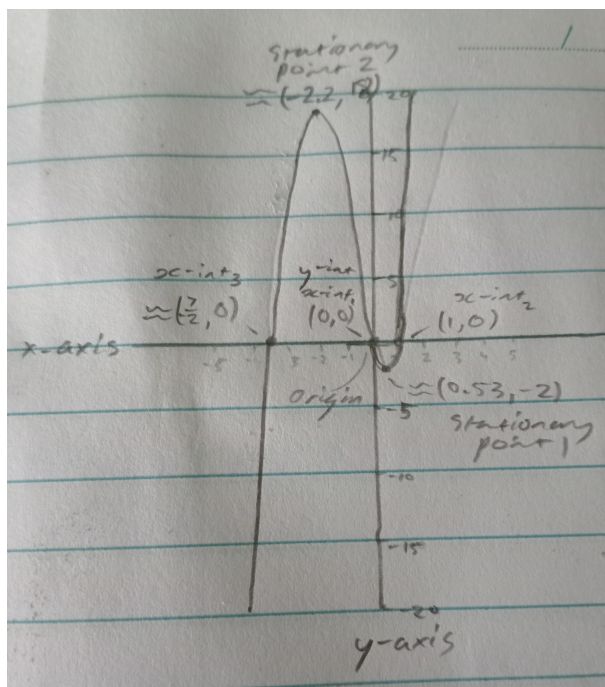 Stationary
point 2
≈(-2.2, 18)
20
15
10
5
x-int₃
≈(-7/2, 0)
y-int
x-int₁
(0,0)
x-int₂
(1,0)
x-axis
-5
-3
-2
-1
2
3
4
5
Origin
≈(0.53, -2)
-5
Stationary
point 1
-10
-15
-20
y-axis